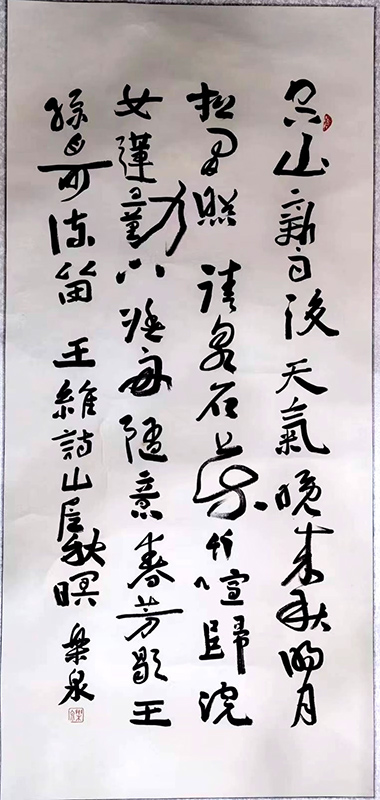 空山新雨後天氣晚來秋明月
松間照清泉石上流竹喧歸浣
女蓮動下漁舟隨意春芳歇王
孫自可留王維詩山居秋暝 樂泉